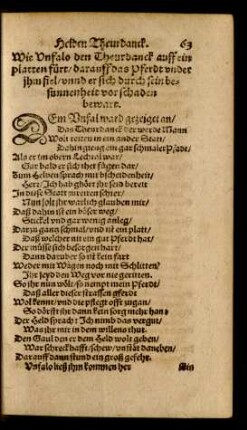 Helden Theurdanck. 63
Wie Vnfalo den Theurdanck auff ein
platten fürt / darauff das Pferdt vnder
jhm fiel / vnnd er sich durch sein be-
sunnenheit vor schaden
bewart.
DEm Vnfal ward gezeiget an /
Das Theurdanck der werde Mann
Wolt reiten in ein ander Statt /
Dahin gieng ein gar schmaler Pfadt /
Als er im obern Lechtal war /
Gar bald er sich thet fügen dar /
Zum Helden sprach mit bscheidenheit /
Herr / Ich hab ghört jhr seid bereit
In diese Statt zureiten schier /
Nun solt jhr warlich glauben mir /
Daß dahin ist ein böser weg /
Stickel vnd gar wenig anleg /
Darzu gantz schmal / vnd ist ein platt /
Daß welcher nit ein gut Pferdt hat /
Der müsse sich besorgen dart /
Dann darüber so ist kein fart
Weder mit Wägen noch mit Schlitten /
Ihr sydt den Weg vor nie geritten.
So jhr nun wölt / so nempt mein Pferdt /
Daß aller dieser strassen gferdt
Wol kennt / vnd die pflegt offt zugan /
So dörfft jhr dann kein sorg mehr han:
Der Held sprach: Ich nimb das vergut /
Was jhr mit in dem willens thut.
Den Gaul den er dem Held wolt geben /
War schreckhafft / schew / vnstät darneben /
Darauff dann stund ein groß gefehr.
Vnfalo ließ jhn kommen her